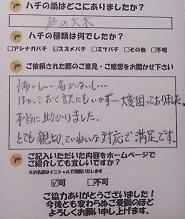 ハチの巣はどこにありましたか？
庭の大木
ハチの種類は何でしたか？
アシナガバチ スズメバチ ミツバチ その他 不明
ご依頼された際のご意見・ご感想をお聞かせ下さい
怖いし、届かないし、
ほかっておく訳にもいかず… 大変困っておりました。
本当に助かりました。
とても親切、ていねいな対応で満足です。
ご記入いただいた内容をホームページで
ご紹介しても宜しいですか？
※お名前はイニシャルで掲載いたします
可 不可
ご協力ありがとうございました！
今後とも変わらぬご愛顧のほど
よろしくお願い申し上げます。